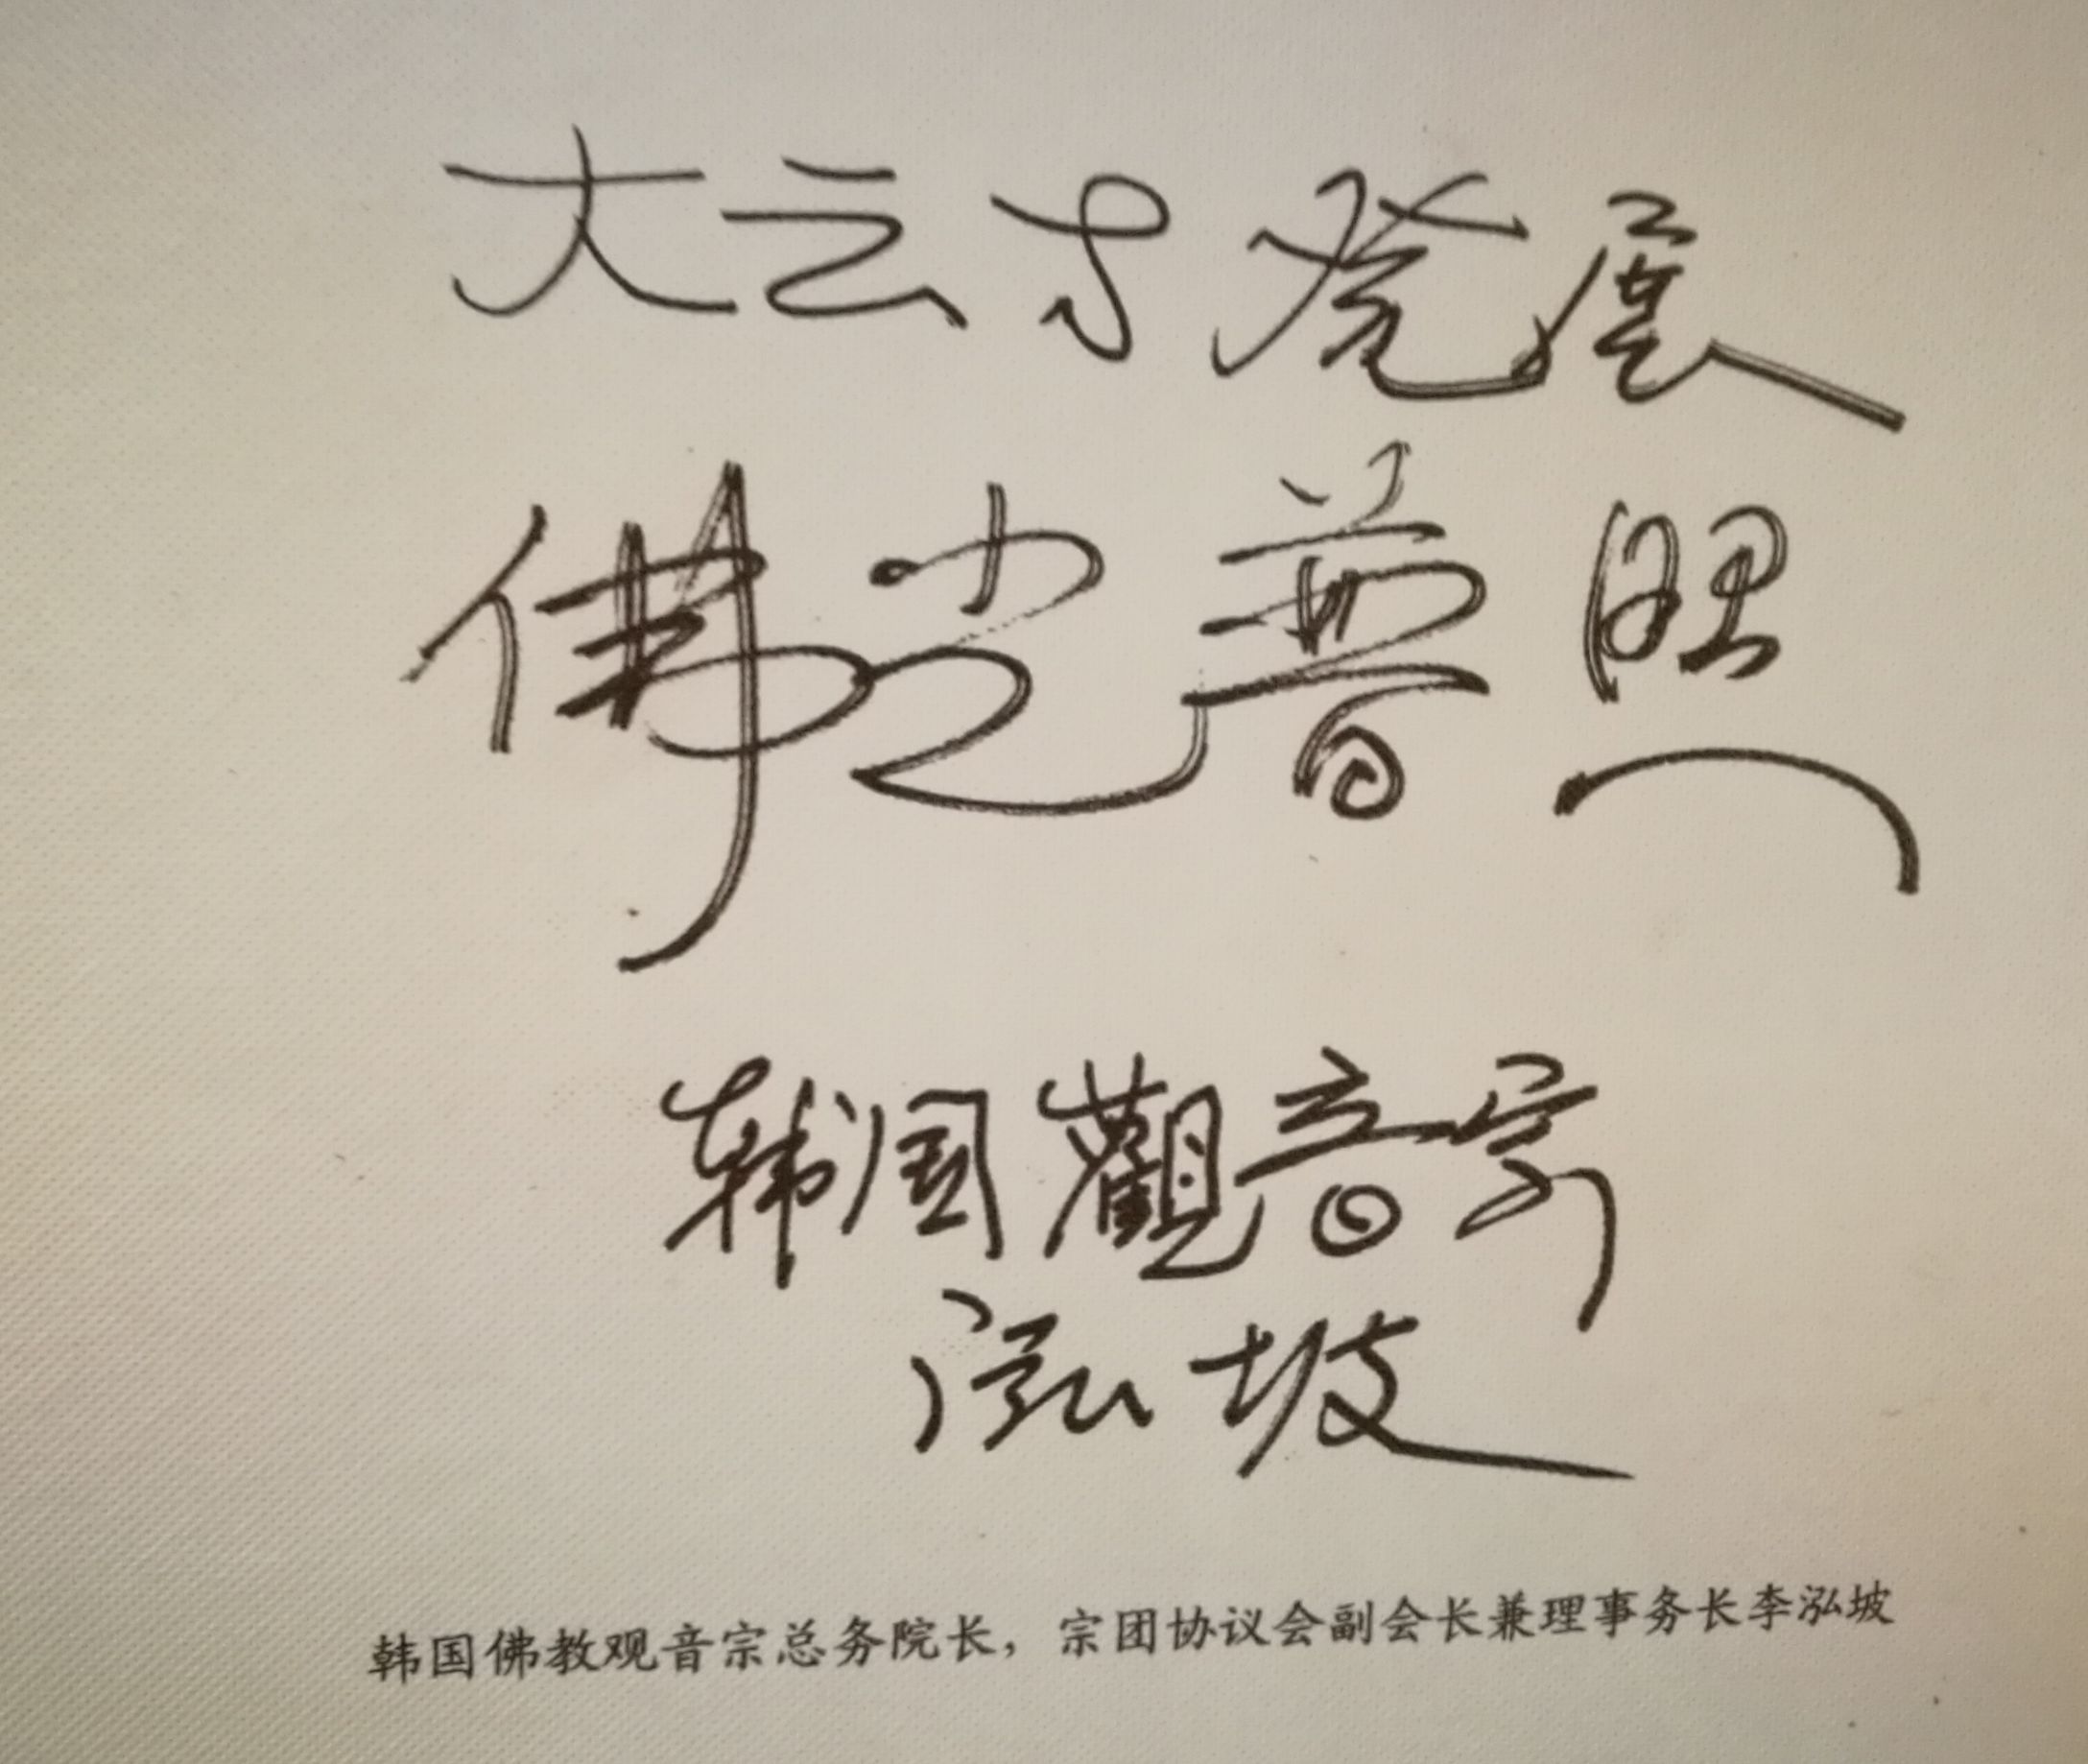 大云寺发展
佛光普照
韩国觀音宗
泓坡
韩国佛教观音宗总务院长，宗团协议会副会长兼理事务长李泓坡